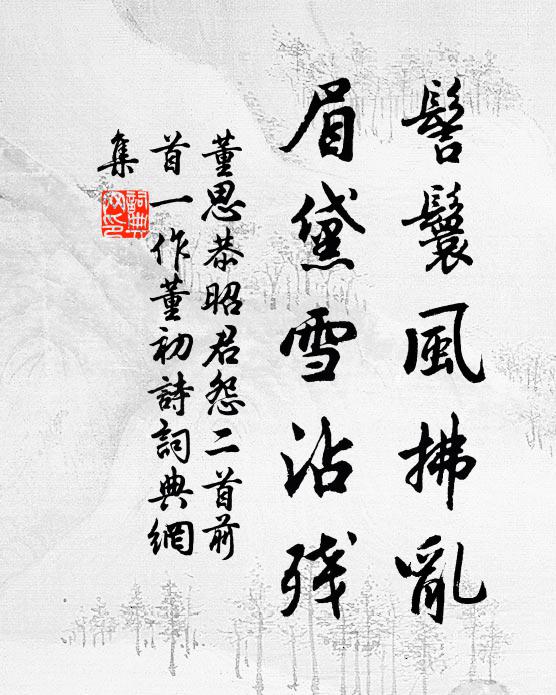 髻鬟風拂亂
眉黛雪沾残
董思恭昭君怨二首前
首一作董初詩詞典網
集
詞典网印